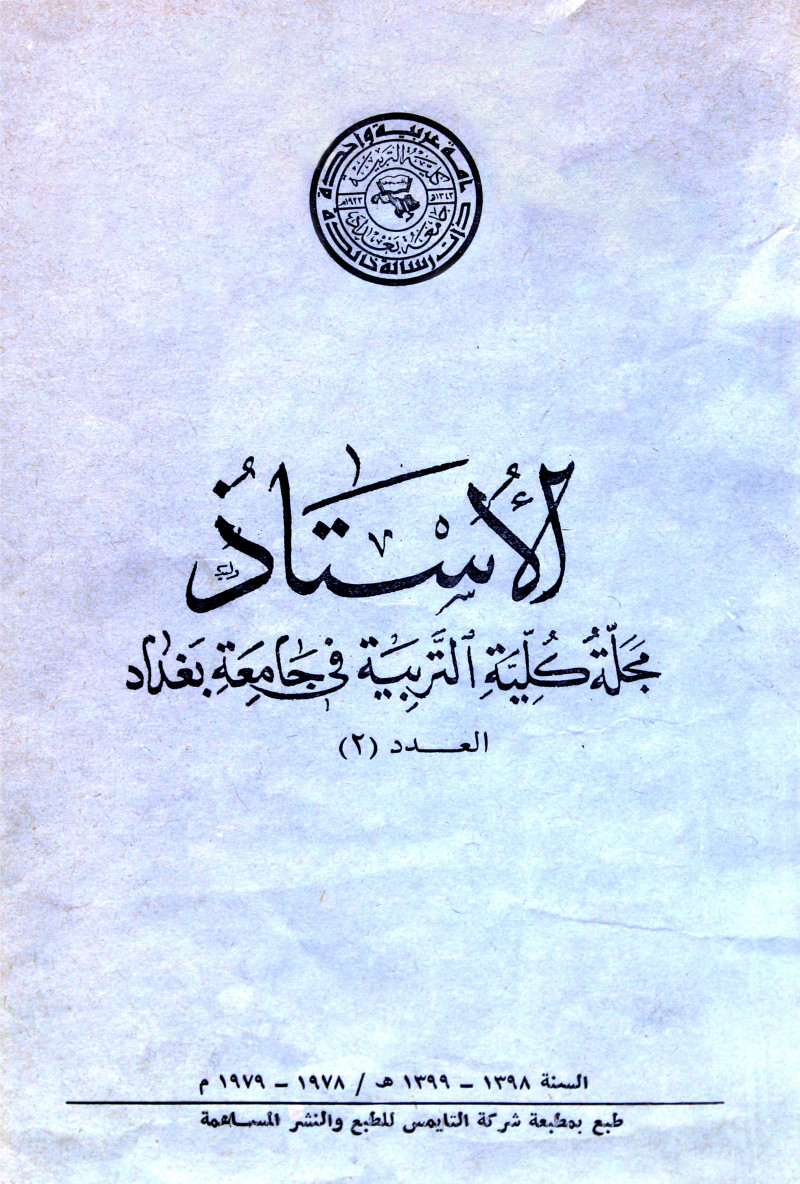 امة عربية واحدة
ذات رسالة خالدة
كلية التربية
١٣٤٢هـ
١٩٢٣م
جامعة بغداد
الأُسْتَاذُ
مَجَلَّةُ كُلِّيَّةِ التَّرْبِيَةِ فِي جَامِعَةِ بَغْدَاد
العـــدد (٢)
السنة ١٣٩٨ – ١٣٩٩ هـ / ١٩٧٨ – ١٩٧٩ م
طبع بمطبعة شركة التايمس للطبع والنشر المساهمة